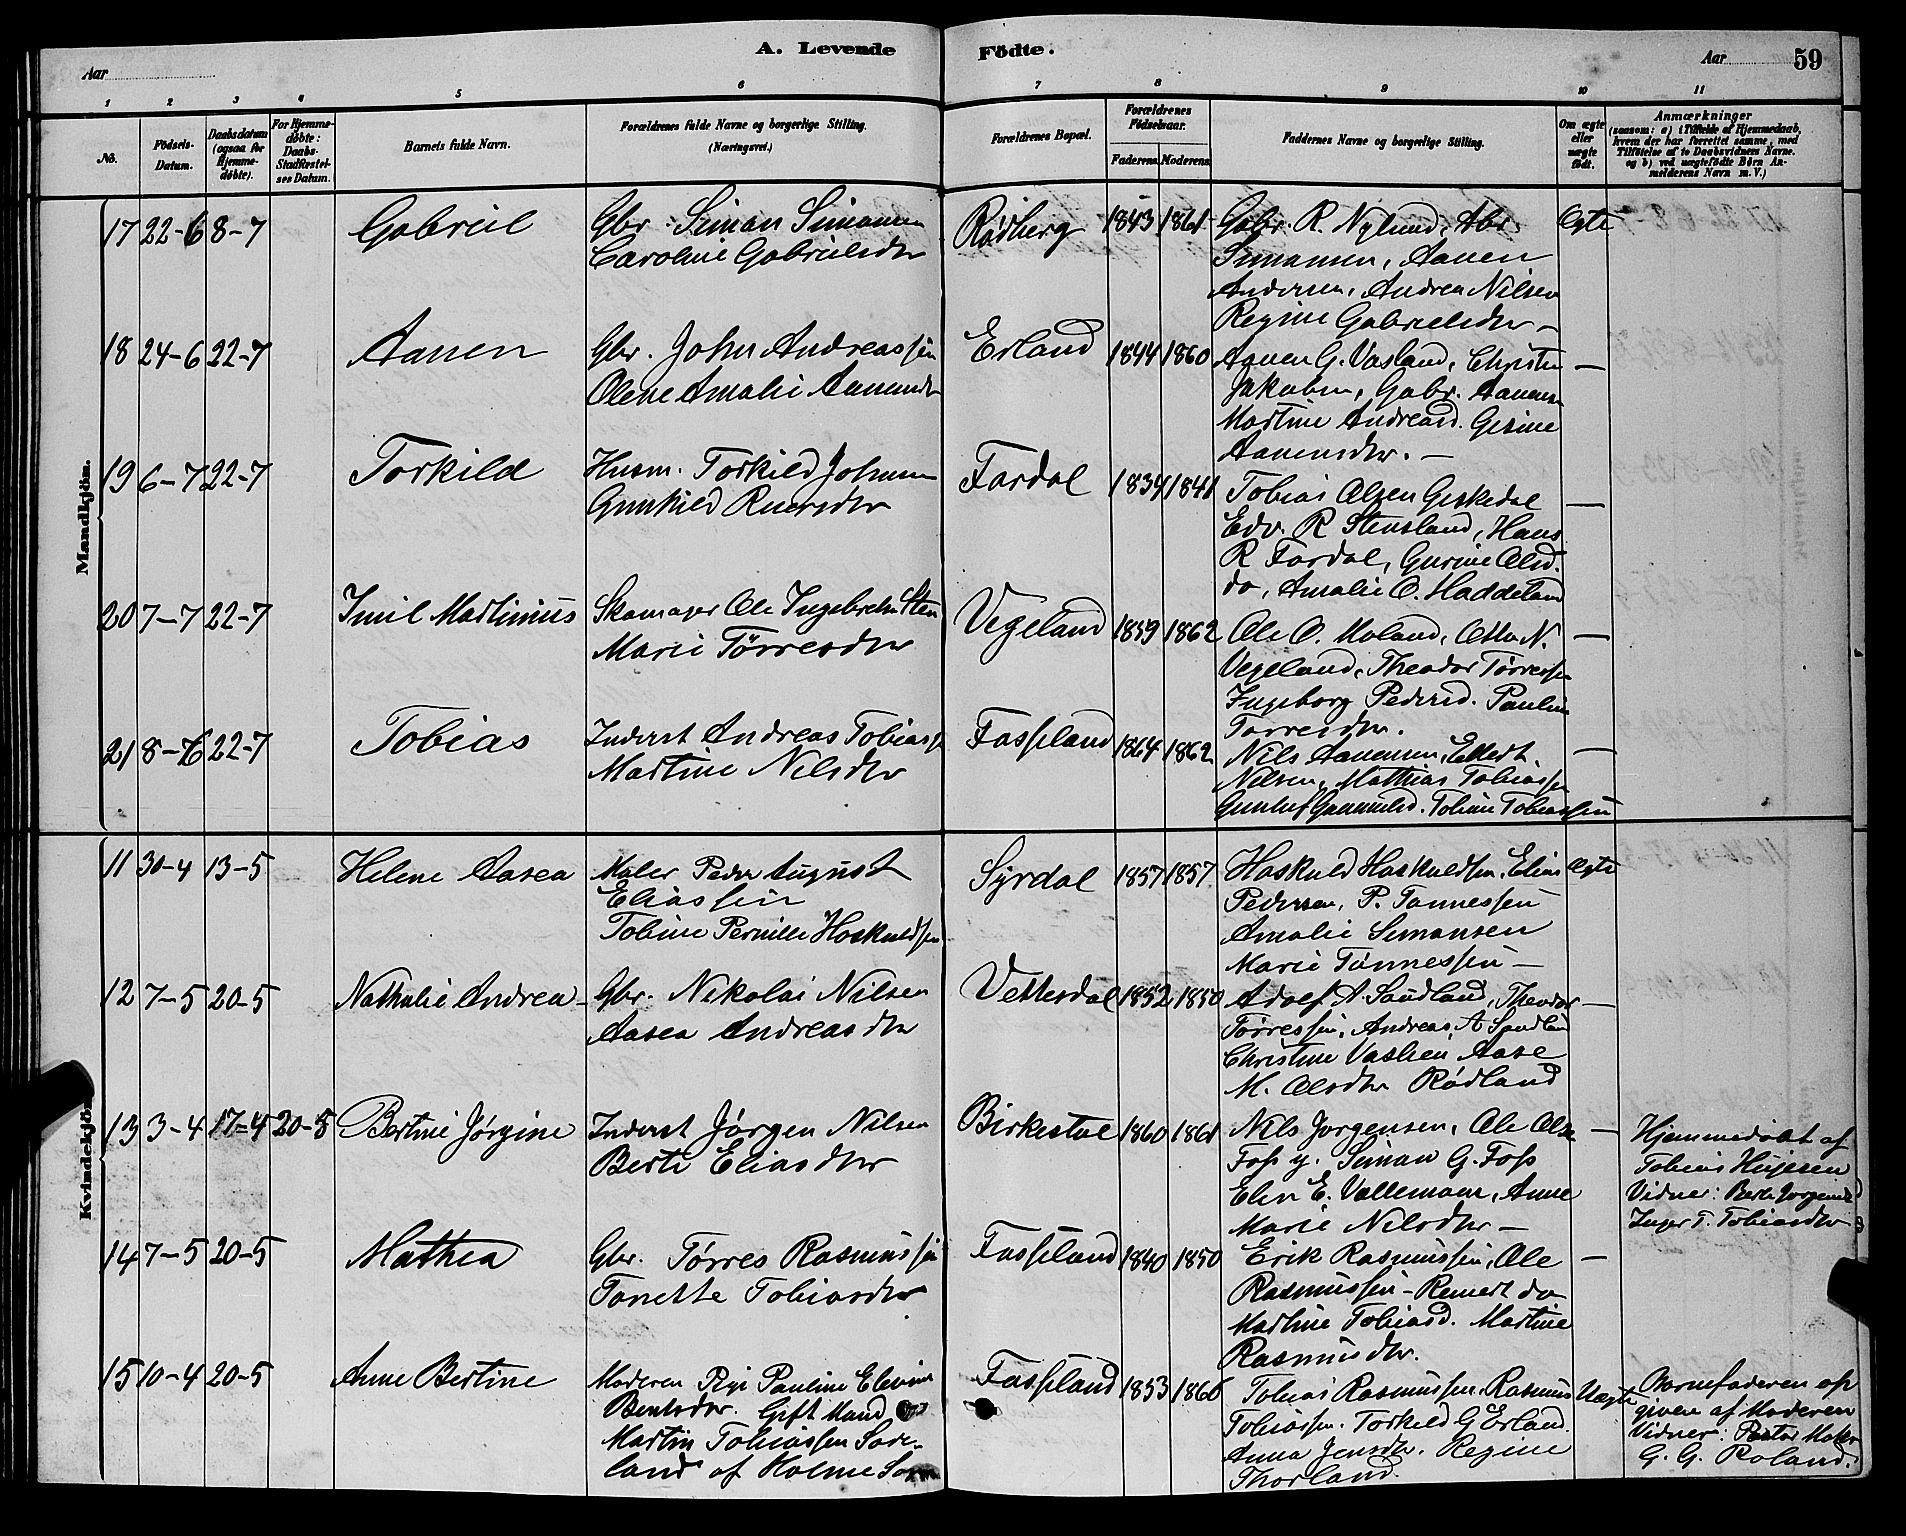 A. Levende Födte.
Aar
Aar 59
1 2 3 4 5 6 7 8 9 10 11
No. Födsels-Datum. Daabsdatum (ogsaa for Hjemme-döbte). For Hjemme-döbte: Daabs-Stadfæstel-ses Datum. Barnets fulde Navn. Forældrenes fulde Navne og borgerlige Stilling. (Næringsvei.) Forældrenes Bopæl. Forældrenes Födselsaar. Faderens. Moderens. Faddernes Navne og borgerlige Stilling. Om ægte eller uægte födt. Anmærkninger (saasom: a) i Tilfælde af Hjemmedaab, hvem der har forrettet samme, med Tilföielse af to Daabsvidners Navne, og b) ved uægtefödte Börn An-melderens Navn m. V.)
Mandkjön.
17 22-6 8-7 Gabriel Gbr. Simon Simonsen Rødberg 1843 1861 Gabr. R. Nylund, Abr. Ægte
Caroline Gabrielsdtr Simonsen, Aanen
Andersen, Andrea Nilsen
Regine Gabrielsdtr —
18 24-6 22-7 Aanen Gbr. John Andreassen Erland 1844 1860 Aanen G. Vasland, Christen —
Olene Amalie Aanensdtr Jakobsen, Gabr. Aanensen
Martine Andreasd. Gesine
Aanensdtr. —
19 6-7 22-7 Torkild Husm. Torkild Johnsen Fardal 1834 1841 Tobias Olsen Geskedal —
Gunhild Reiersdtr Edv. R Stensland, Hans
R Fardal, Gurine Olsd.
do, Amalie O. Haddeland
20 7-7 22-7 Imil Martinius Skomager Ole Ingebretsen Vegeland 1859 1862 Ole O. Moland, Otto N. —
Marie Tørresdtr Vegeland, Theodor Tørressen
Ingeborg Pedersd. Pauline
Tørresdtr.
21 8-6 22-7 Tobias Inderst Andreas Tobiassen Fassland 1864 1862 Nils Aanensen, —
Martine Nilsdtr Nilsen, Mathias Tobiassen
Tobine Tobiassen
Kvindekjön.
11 30-4 13-5 Helene Aasea Maler Peder August Syrdal 1857 1857 Haskuld Haskuldsen, Elias Ægte
Eliassen Pedersen, P. Tønnessen
Tobine Pernille Haskuldsen Amalie Simonsen
Marie Tønnessen —
12 7-5 20-5 Nathalie Andrea Gbr. Nikolai Nilsen Vettesdal 1852 1850 Adolf A. Sandland, Theodor —
Aasea Andreasdtr Tørressen, Andreas A Sandland
Christine Vaslien Aase
M. Olsdtr Rødland
13 3-4 17-4 20-5 Bertine Jørgine Inderst Jørgen Nilsen Birkestøl 1860 1861 Nils Jørgensen, Ole Olsen — Hjemmedøbt af
Berte Eliasdtr Foss y. Simon G. Foss Tobias
Elen E. Vallemoen, Anne Vidner: Berte Jørgensd
Marie Nilsdtr — Inger T. Tobiasdtr
14 7-5 20-5 Mathea Gbr. Tørres Rasmussen Fassland 1840 1850 Erik Rasmussen, Ole —
Tonette Tobiasdtr Rasmussen - Reinert do
Martine Tobiasd. Martine
Rasmusdtr.
15 10-4 20-5 Anne Bertine Moderen Pige Pauline Elevine Fassland 1853 1866 Tobias Rasmussen, Rasmus Uægte Barnefaderen op
Bentsdtr. Gift Mand Tobiassen. Torkild G Erland given af Moderen
Martin Tobiassen Søre- Anna Jensdtr. Regine Vidner: Pastor
land af Holme Sogn Thorland. G. G. Røland.